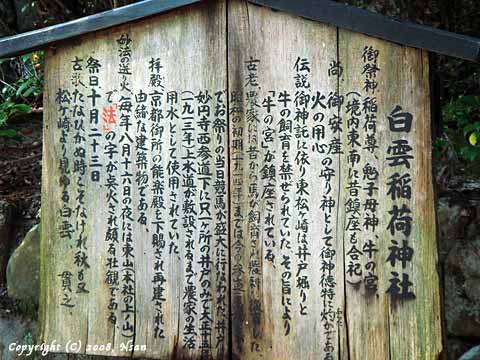 白雲稲荷神社
御祭神 稲荷尊 鬼子母神 牛の宮
(境内東南に昔鎮座も合祀)
尚 御安産
火の用心の守り神として御神徳特に灼かである
伝説 御神託に依り東松ヶ崎は井戸堀りと
牛の飼育を禁ぜられていた。その旨により
牛の宮が鎮座されている。
古老 農家には古から馬が飼育され
昭和の初期
でお祭りの当日競馬が盛大に行なわれた。井戸
妙円寺西参道下に只一ヶ所の井戸のみで大正十三年
(一九二三年)上水道が敷設されるまで農家の生活
用水として使用されていた。
拝殿 京都御所の能楽殿を下賜され再建された
由緒な建築物である。
妙法の送り火(毎年八月十六日の夜には東山(本社の上ノ山)
で「法」の字が点火され頗る壮観である。
祭日 十月二十三日
古歌 たなびかぬ時こそなけれ秋も又
松ヶ崎より見ゆる白雲 貫之
Copyright (C) 2008, N.san
Copyright (C) 2008, N.san